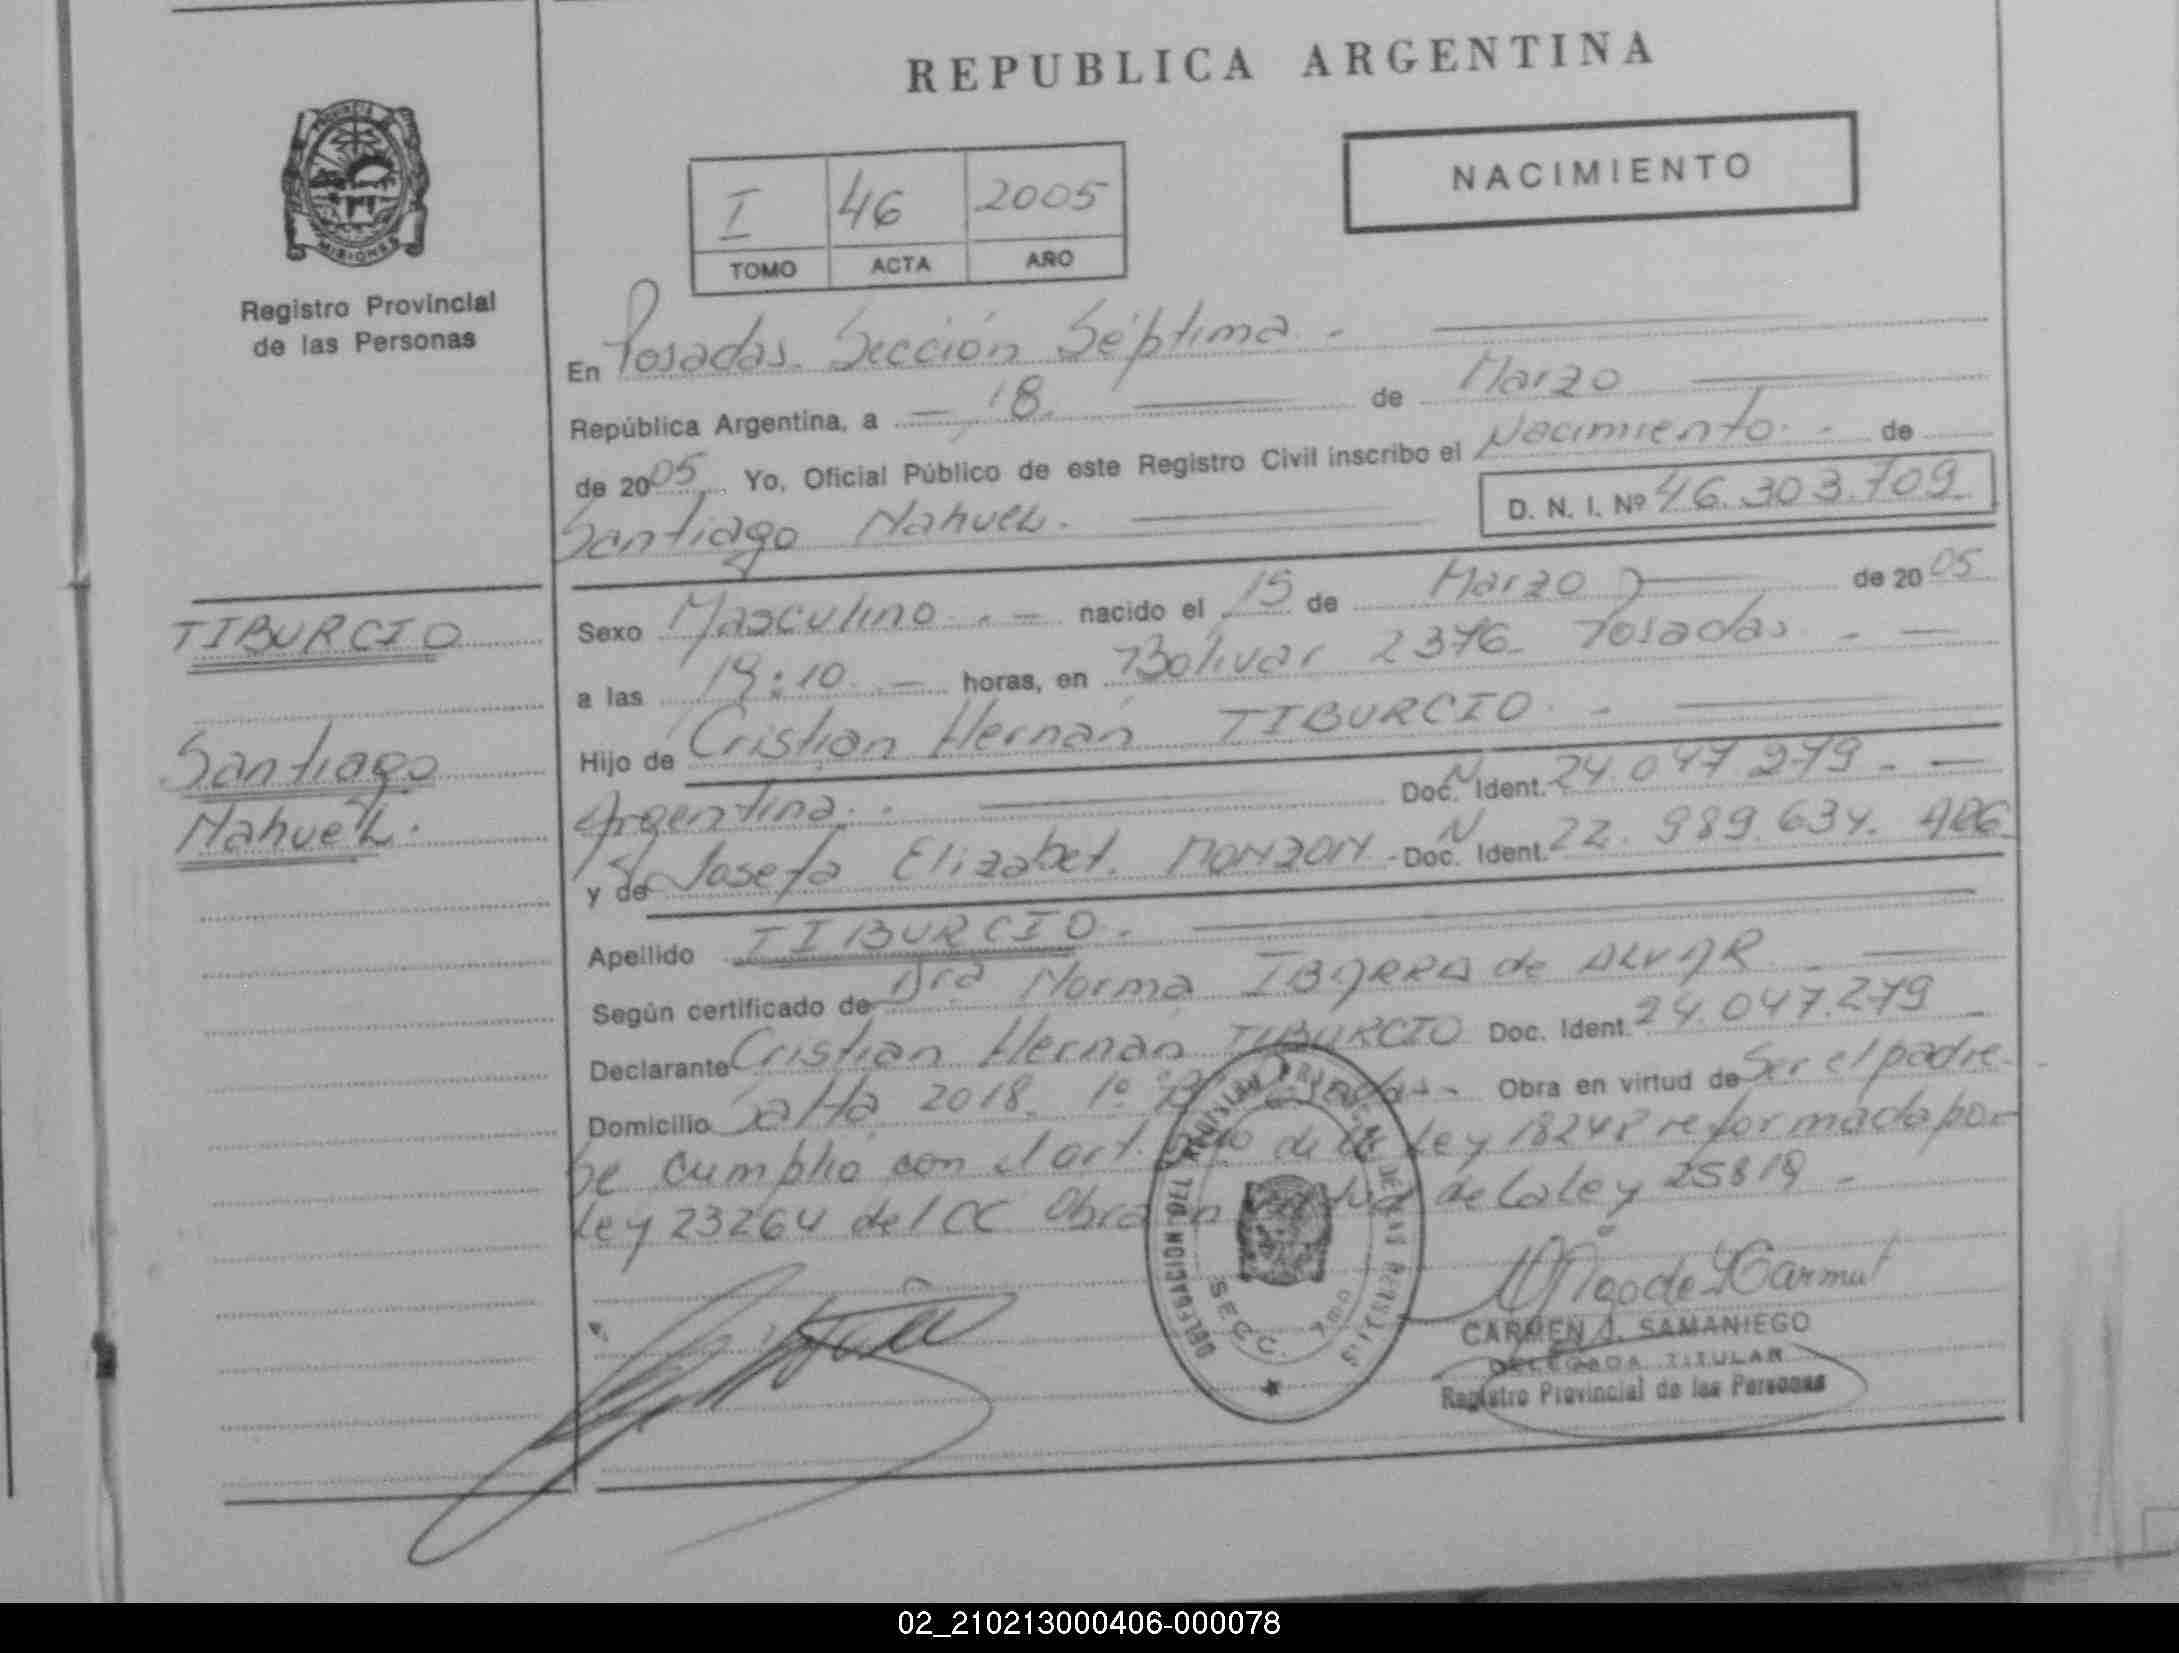 REPUBLICA ARGENTINA
PROVINCIA DE
MISIONES
Registro Provincial
de las Personas
NACIMIENTO
I 46 2005
TOMO ACTA AÑO
En Posadas. Sección Séptima. -
República Argentina, a - 18. de Marzo
de 2005. Yo, Oficial Público de este Registro Civil inscribo el Nacimiento. - de
Santiago Nahuel. D. N. I. Nº 46.303.709
TIBURCIO
Santiago
Nahuel.
Sexo Masculino. - nacido el 15 de Marzo de 2005
a las 19:10 - horas, en Bolívar 2376 - Posadas - -
Hijo de Cristian Hernán TIBURCIO. -
Argentina. - Doc. N Ident. 24.047.279 - -
y de Josefa Elizabet. MONZON - Doc. N Ident. 22.989.634. ARG
Apellido TIBURCIO. -
Según certificado de Dra Norma IBARRA de
Declarante Cristian Hernán TIBURCIO Doc. Ident. 24.047.279 -
Domicilio Salta 2018. 1º Obra en virtud de Ser el padre.
Se cumplio con el art. de la Ley 18248 reformada por
Ley 23264 del CC Obra en virtud de la Ley 25819 -
DELEGACION DEL REGISTRO PROVINCIAL DE LAS PERSONAS
SECC. 7ma
CARMEN J. SAMANIEGO
DELEGADA TITULAR
Registro Provincial de las Personas
02_210213000406-000078